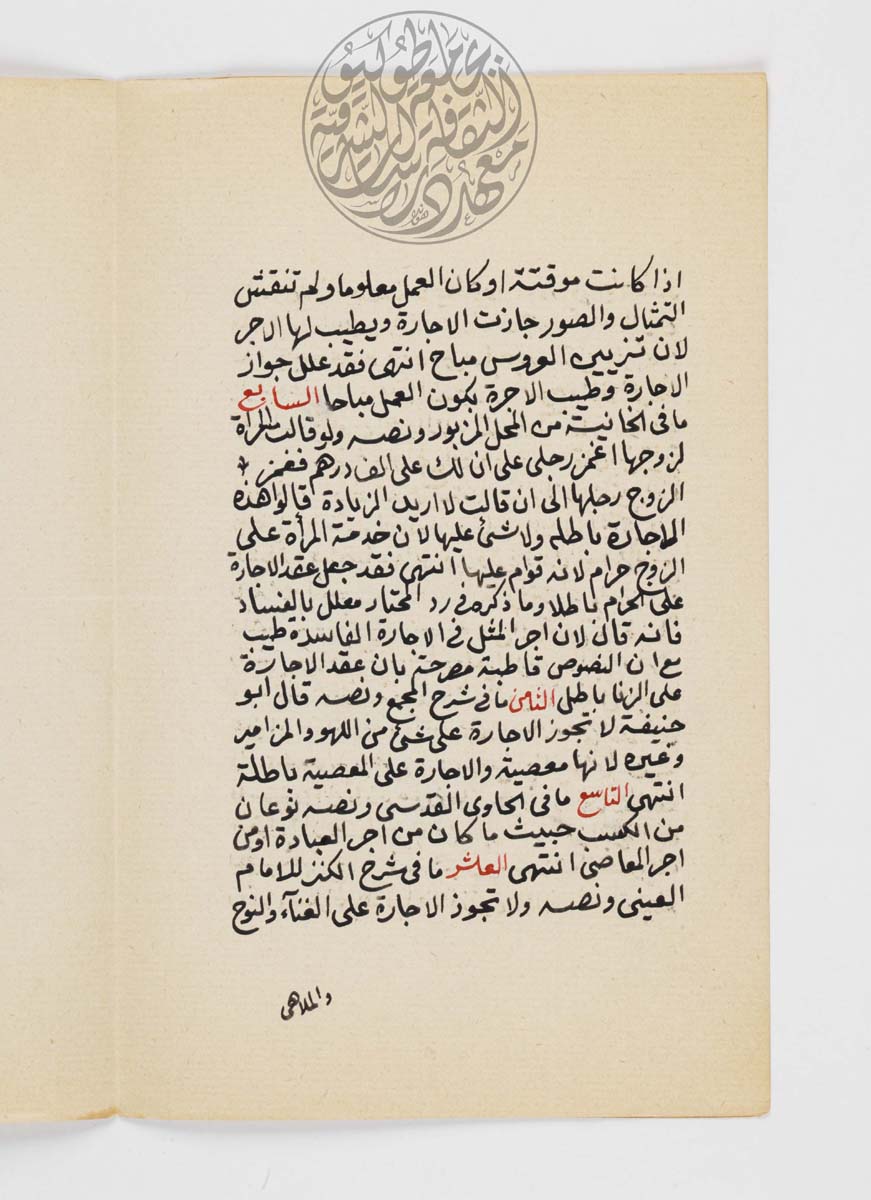 اذا كانت موقتة او كان العمل معلوما ولم تنقش
التمثال والصور جازت الاجارة ويطيب لها الاجر
لان تزيين العروس مباح انتهى فقد علل جواز
الاجارة وطيب الاجرة بكون العمل مباحا السابع
ما فى الخانية من المحل المزبور ونصه ولو قالت المراة
لزوجها اغمز رجلى على ان لك على الف درهم فغمز
الزوج رجلها الى ان قالت لا اريد الزيادة قالوا هذه
الاجارة باطله ولا شئ عليها لان خدمة المرأة على
الزوج حرام لانه قوام عليها انتهى فقد جعل عقد الاجارة
على الحرام باطلا وما ذكره فى رد المحتار معلل بالفساد
فانه قال لان اجر المثل فى الاجارة الفاسدة طيب
مع ان النصوص قاطبة مصرحة بان عقد الاجارة
على الزنا باطل الثامن ما فى شرح المجمع ونصه قال ابو
حنيفة لا تجوز الاجارة على شئ من اللهو والمزامير
وغيره لانها معصية والاجارة على المعصية باطلة
انتهى التاسع ما فى الحاوى القدسى ونصه نوعان
من الكسب خبيث ما كان من اجر العبادة او من
اجر المعاصى انتهى العاشر ما فى شرح الكنز للامام
العينى ونصه ولا تجوز الاجارة على الغنآء والنوح
والملاهى